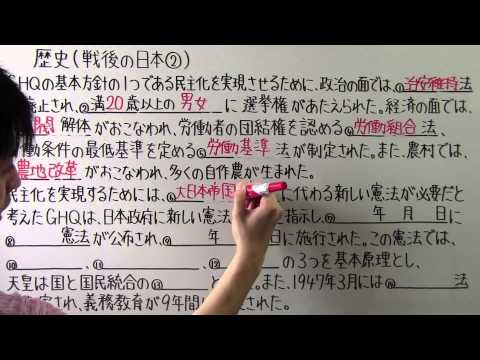 歴史(戦後の日本②)
GHQの基本方針の1つである民主化を実現させるために、政治の面では、①治安維持法
廃止され、②満20歳以上の男女に選挙権があたえられた。経済の面では、
閥解体がおこなわれ、労働者の団結権を認める④労働組合法、
労働条件の最低基準を定める⑤労働基準法が制定された。また、農村では、
農地改革がおこなわれ、多くの自作農が生まれた。
民主化を実現するためには、⑦大日本帝国に代わる新しい憲法が必要だと
考えたGHQは、日本政府に新しい憲法 指示し、 年 月 日に
⑧ 憲法が公布され、⑨ 年 日に施行された。この憲法では、
⑩ 、⑪ 、⑫ の3つを基本原理とし、
天皇は国と国民統合の⑬ と また、1947年3月には⑭ 法
定され、義務教育が9年間に された。